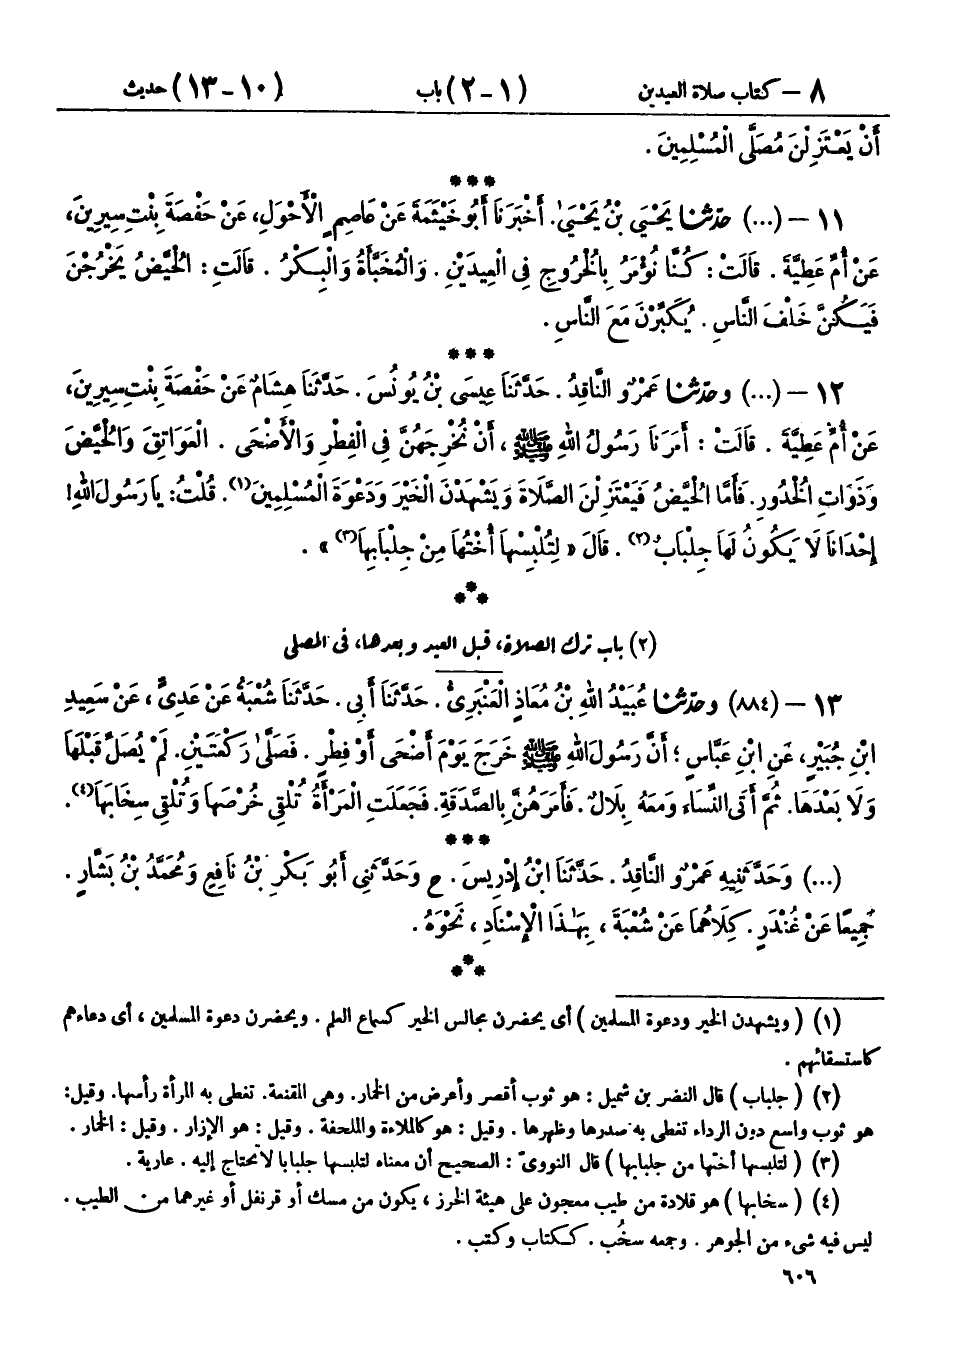 ٨ – كتاب صلاة العيدين (١ - ٢) باب (١٠ - ١٣) حديث
أَنْ يَعْتَزِلْنَ مُصَلَّى الْمُسْلِمِينَ .
***
١١ – (...) حَدَّثَنَا يَحْيَى بْنُ يَحْيَىٰ. أَخْبَرَنَا أَبُو خَيْثَمَةَ عَنْ عَاصِمٍ الْأَحْوَلِ، عَنْ حَفْصَةَ بِنْتِ سِيرِينَ،
عَنْ أُمِّ عَطِيَّةَ . قَالَتْ : كُنَّا نُؤْمَرُ بِالْخُرُوجِ فِي الْعِيدَيْنِ . وَالْمُخَبَّأَةُ وَالْبِكْرُ . قَالَتِ : الْحُيَّضُ يَخْرُجْنَ
فَيَكُنَّ خَلْفَ النَّاسِ . يُكَبِّرْنَ مَعَ النَّاسِ .
***
١٢ – (...) وحَدَّثَنَا عَمْرٌو النَّاقِدُ . حَدَّثَنَا عِيسَى بْنُ يُونُسَ . حَدَّثَنَا هِشَامٌ عَنْ حَفْصَةَ بِنْتِ سِيرِينَ،
عَنْ أُمِّ عَطِيَّةَ . قَالَتْ : أَمَرَنَا رَسُولُ اللهِ ﷺ ، أَنْ نُخْرِجَهُنَّ فِي الْفِطْرِ وَالْأَضْحَى . الْعَوَاتِقَ وَالْحُيَّضَ
وَذَوَاتِ الْخُدُورِ. فَأَمَّا الْحُيَّضُ فَيَعْتَزِلْنَ الصَّلَاةَ وَيَشْهَدْنَ الْخَيْرَ وَدَعْوَةَ الْمُسْلِمِينَ(١). قُلْتُ: يَا رَسُولَ اللهِ!
إِحْدَانَا لَا يَكُونُ لَهَا جِلْبَابٌ(٢) . قَالَ « لِتُلْبِسْهَا أُخْتُهَا مِنْ جِلْبَابِهَا(٣) » .
***
(٢) باب ترك الصلاة، قبل العيد وبعدها، فى المصلى
١٣ – (٨٨٤) وحَدَّثَنَا عُبَيْدُ اللهِ بْنُ مُعَاذٍ الْعَنْبَرِيُّ . حَدَّثَنَا أَبِي . حَدَّثَنَا شُعْبَةُ عَنْ عَدِيٍّ ، عَنْ سَعِيدِ
ابْنِ جُبَيْرٍ، عَنِ ابْنِ عَبَّاسٍ ؛ أَنَّ رَسُولَ اللهِ ﷺ خَرَجَ يَوْمَ أَضْحَى أَوْ فِطْرٍ . فَصَلَّىٰ رَكْعَتَيْنِ. لَمْ يُصَلِّ قَبْلَهَا
وَلَا بَعْدَهَا. ثُمَّ أَتَى النِّسَاءَ وَمَعَهُ بِلَالٌ . فَأَمَرَهُنَّ بِالصَّدَقَةِ. فَجَعَلَتِ الْمَرْأَةُ تُلْقِي خُرْصَهَا وَتُلْقِي سِخَابَهَا(٤).
***
(...) وَحَدَّثَنِيهِ عَمْرٌو النَّاقِدُ . حَدَّثَنَا ابْنُ إِدْرِيسَ . ح وَحَدَّثَنِي أَبُو بَكْرِ بْنُ نَافِعٍ وَمُحَمَّدُ بْنُ بَشَّارٍ .
جَمِيعًا عَنْ غُنْدَرٍ . كِلَاهُمَا عَنْ شُعْبَةَ ، بِهَذَا الْإِسْنَادِ ، نَحْوَهُ .
***
(١) ( ويشهدن الخير ودعوة المسلمين ) أى يحضرن مجالس الخير كسماع العلم . ويحضرن دعوة المسلمين ، أى دعاءهم
كاستسقائهم .
(٢) ( جلباب ) قال النضر بن شميل : هو ثوب أقصر وأعرض من الخمار. وهى المقنعة. تغطى به المرأة رأسها. وقيل:
هو ثوب واسع دون الرداء تغطى به صدرها وظهرها . وقيل : هو كالملاءة والملحفة . وقيل : هو الإزار . وقيل : الخمار .
(٣) ( لتلبسها أختها من جلبابها ) قال النووىّ : الصحيح أن معناه لتلبسها جلبابا لا تحتاج إليه . عارية .
(٤) ( سخابها ) هو قلادة من طيب معجون على هيئة الخرز ، يكون من مسك أو قرنفل أو غيرهما من الطيب .
ليس فيه شىء من الجوهر . وجمعه سخُب . ككتاب وكتب .
٦٠٦